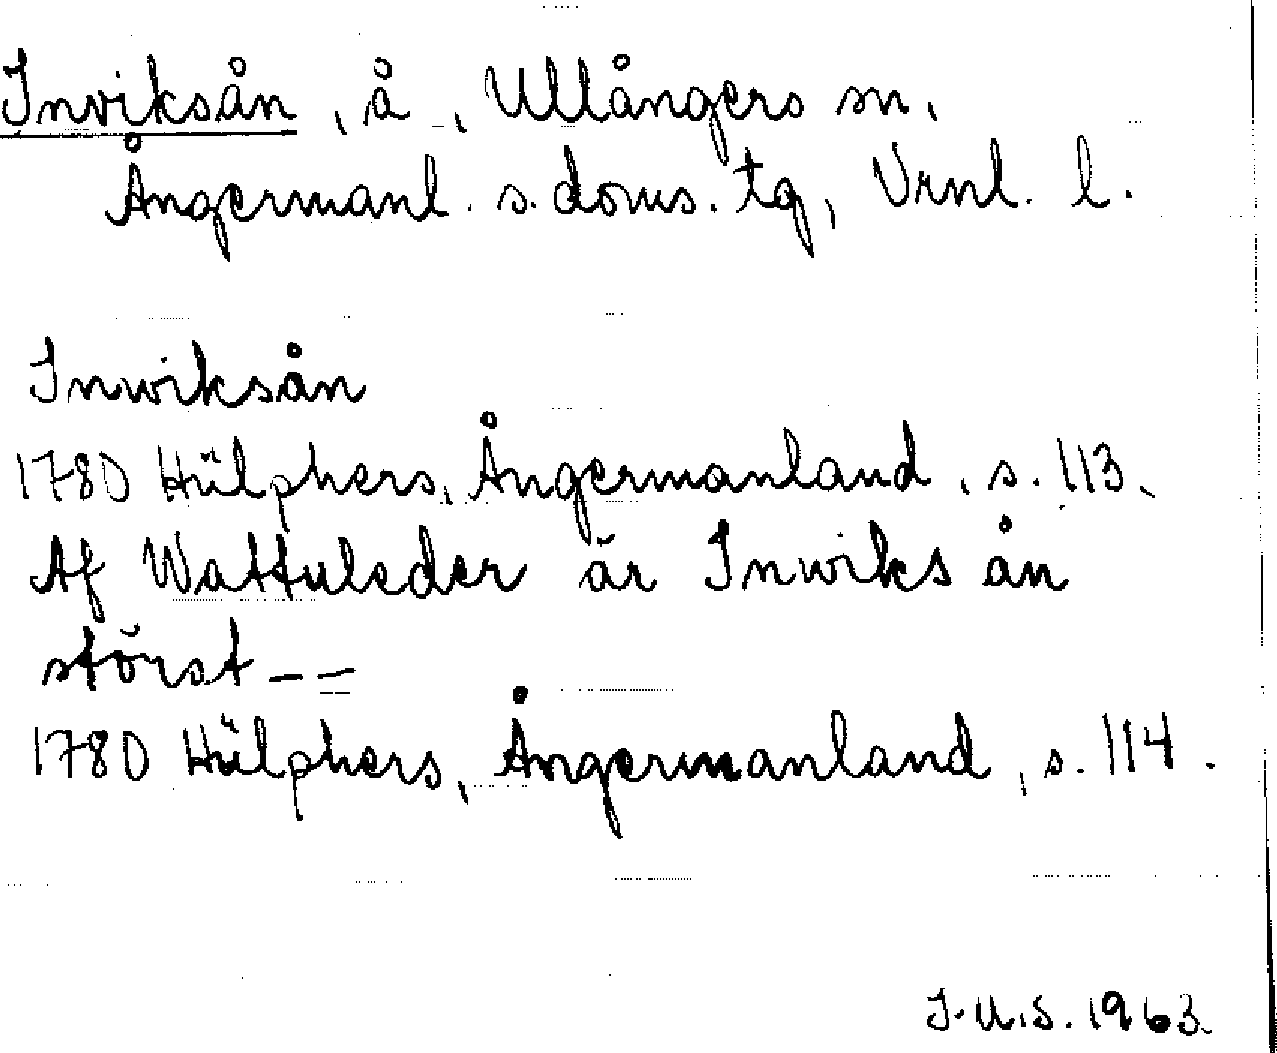 Inviksån, å, Ullångers sn,
Ångermanl. s. doms. tg, Vrnl. l.
Inwiksån
1780 Hülphers, Ångermanland, s. 113.
Af Wattuleder är Inwiks ån
störst – –
1780 Hülphers, Ångermanland, s. 114.
I.U.S. 1963